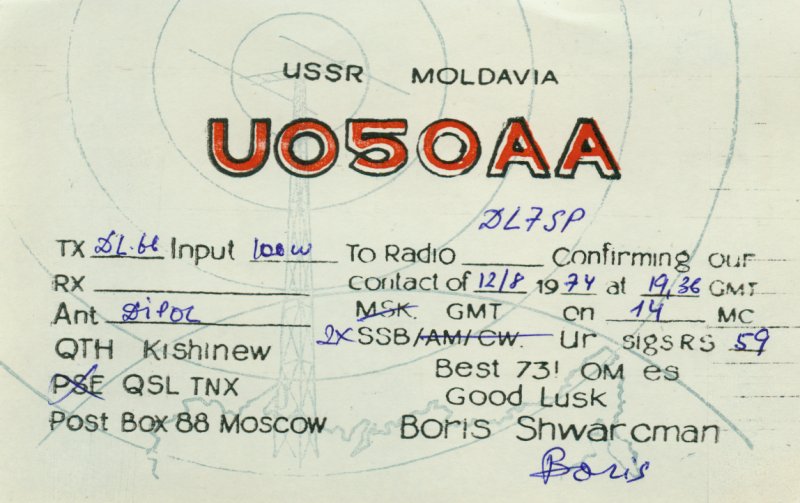 USSR MOLDAVIA
UO5OAA
DL7SP
TX DL.66 Input 100w To Radio Confirming our
RX contact of 12/8 1974 at 19,36 GMT
Ant Dipol MSK. GMT on 14 MC
QTH Kishinew 2X SSB/AM/CW. Ur sigs RS 59
PSE QSL TNX Best 73! OM es
Good Lusk
Post Box 88 Moscow Boris Shwarcman
Boris